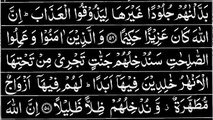 بَدَّلْنٰهُمْ جُلُوْدًا غَيْرَهَا لِيَذُوْقُوا الْعَذَابَ ؕ اِنَّ
اللّٰهَ كَانَ عَزِيْزًا حَكِيْمًا ﴿۵۶﴾ وَالَّذِيْنَ اٰمَنُوْا وَعَمِلُوا
الصّٰلِحٰتِ سَنُدْخِلُهُمْ جَنّٰتٍ تَجْرِيْ مِنْ تَحْتِهَا
الْاَنْهٰرُ خٰلِدِيْنَ فِيْهَاۤ اَبَدًا ؕ لَهُمْ فِيْهَاۤ اَزْوَاجٌ
مُّطَهَّرَةٌ ؗ وَّنُدْخِلُهُمْ ظِلًّا ظَلِيْلًا ﴿۵۷﴾ اِنَّ اللّٰهَ